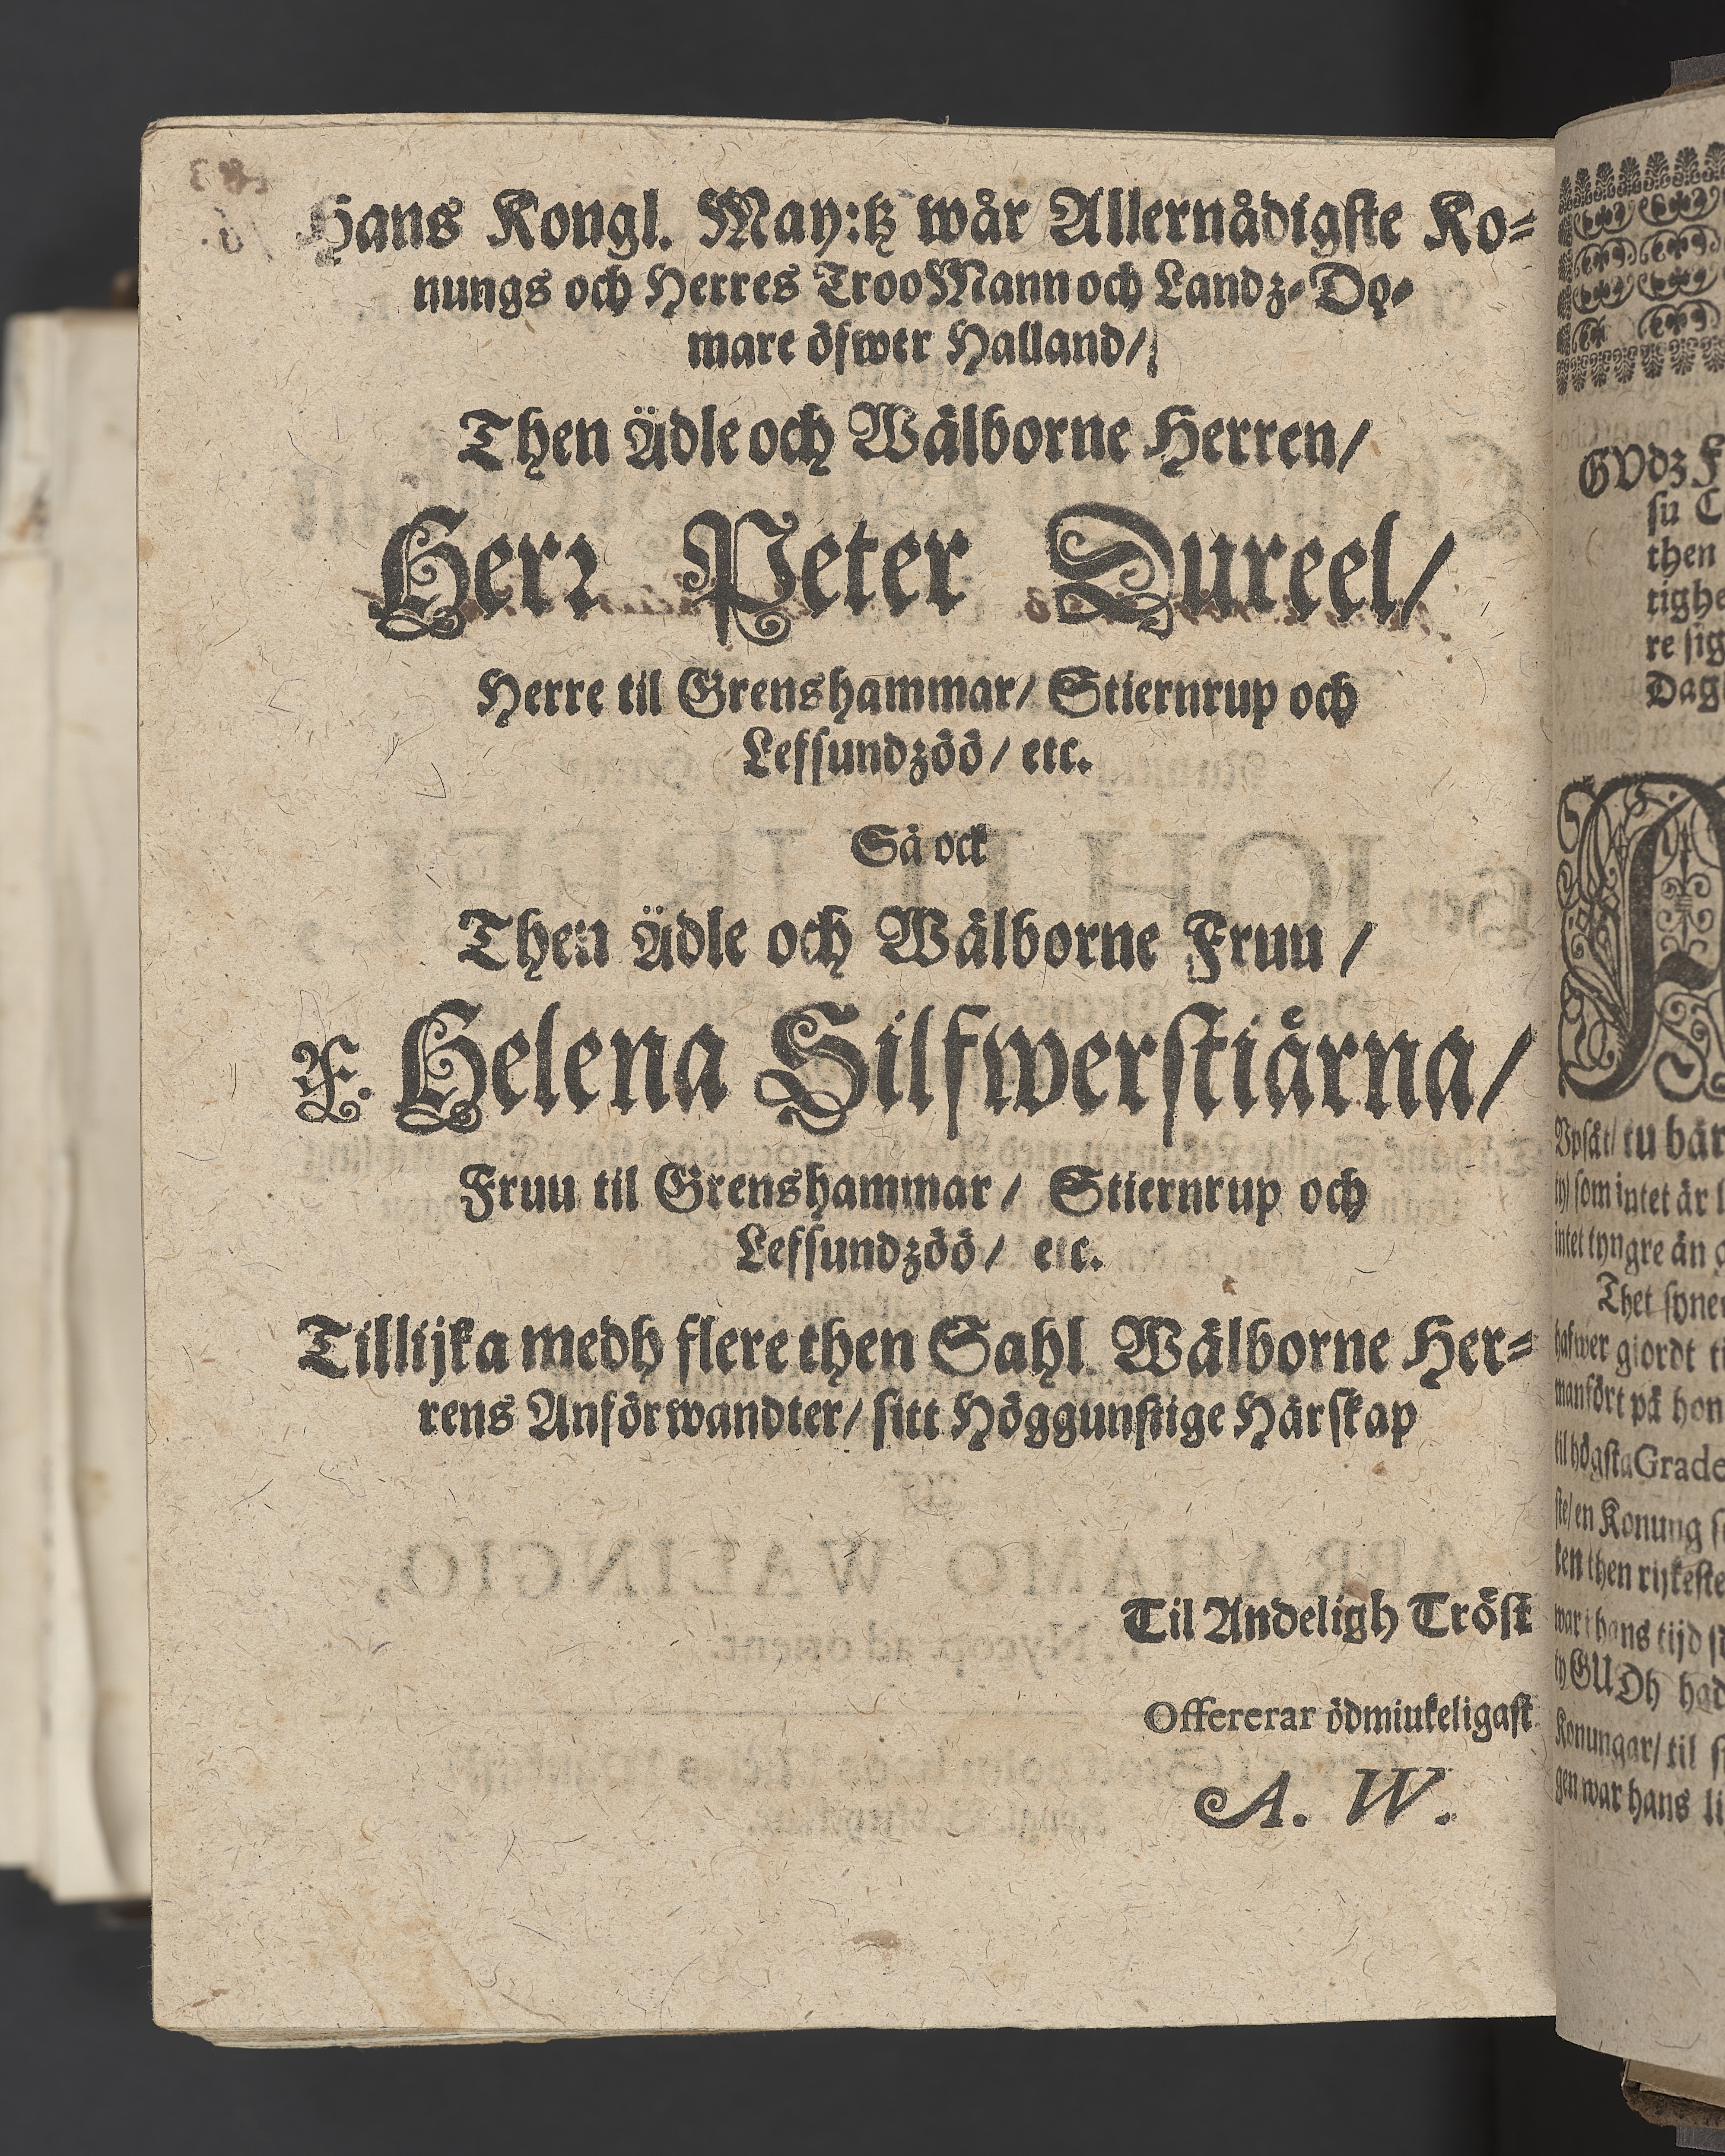 Hans Kongl. May:tz wår Allernådigste Ko-
nungs och Herres Troo Mann och Landz-Do-
mare öfwer Halland/
Then Ädle och Wälborne Herren/
Herr Peter Dureel/
Herre til Grenshammar/ Stiernrup och
Lefsundzöö/ etc.
Så ock
Then Ädle och Wälborne Fruu/
F. Helena Silfwerstiärna/
Fruu til Grenshammar/ Stiernrup och
Lefsundzöö/ etc.
Tillijka medh flere then Sahl. Wälborne Her-
rens Anförwandter/ sitt Höggunstige Härskap
Til Andeligh Tröst
Offererar ödmiukeligast
A. W.
GUdz
su
then
re sig
Dag
A
Upsåt/ tu bär
som intet är
intet tyngre än
Thet syne
hafwer giordt
manfört på hon
til högsta Grade
en Konung
then rijkeste
war i hans tijd
GUDh had
Konungar/ til
gen war hans li